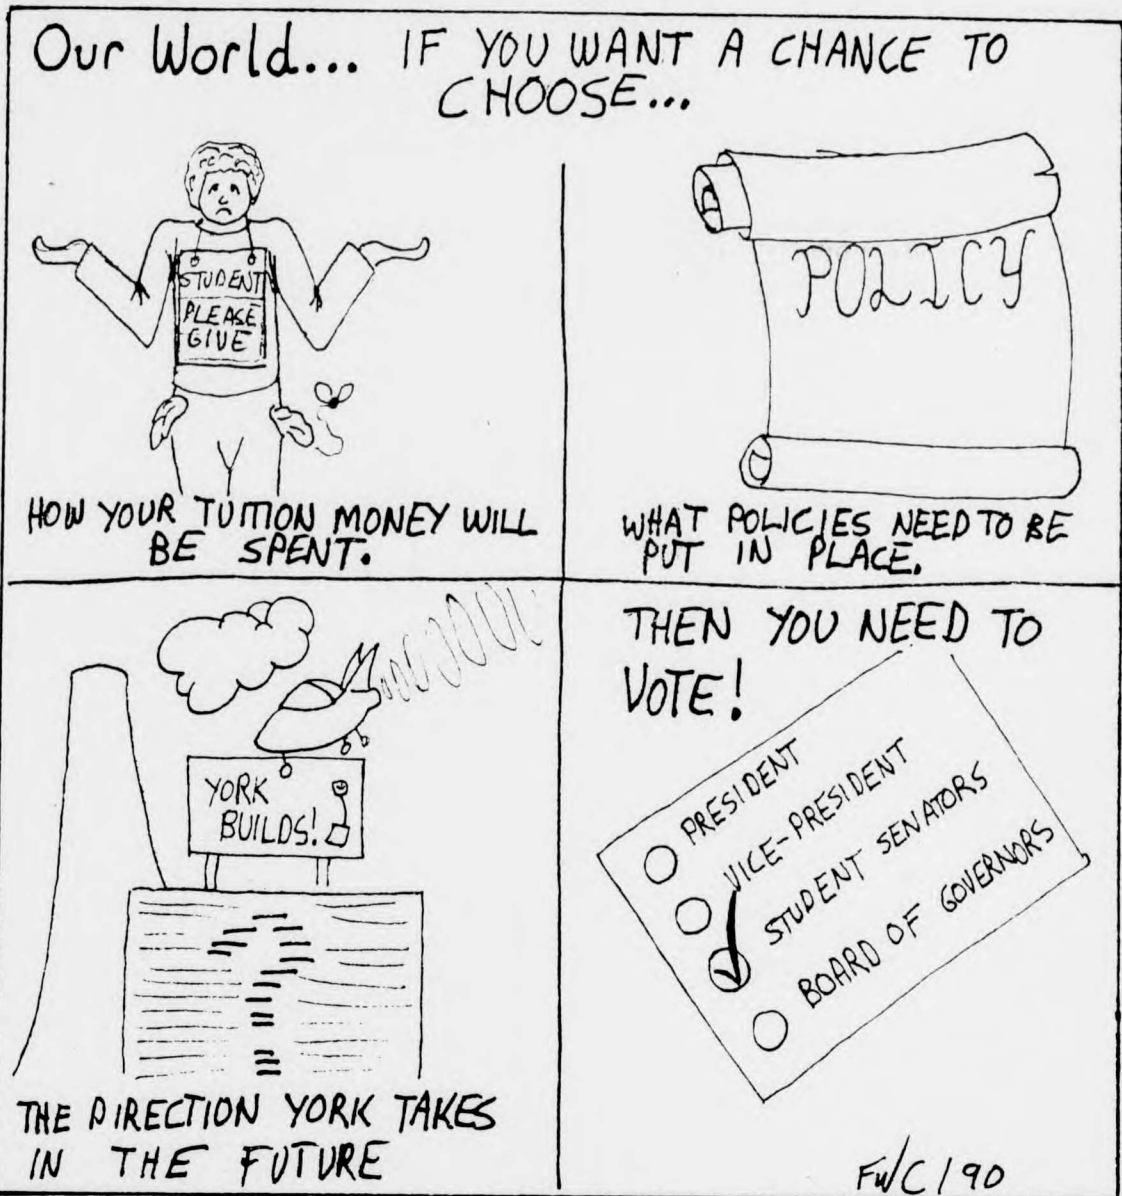 Our World... IF YOU WANT A CHANCE TO
CHOOSE...
STUDENT
PLEASE
GIVE
HOW YOUR TUITION MONEY WILL
BE SPENT.
POLICY
WHAT POLICIES NEED TO BE
PUT IN PLACE.
YORK
BUILDS!
THE DIRECTION YORK TAKES
IN THE FUTURE
THEN YOU NEED TO
VOTE!
PRESIDENT
VICE-PRESIDENT
STUDENT SENATORS
BOARD OF GOVERNORS
FWC/90